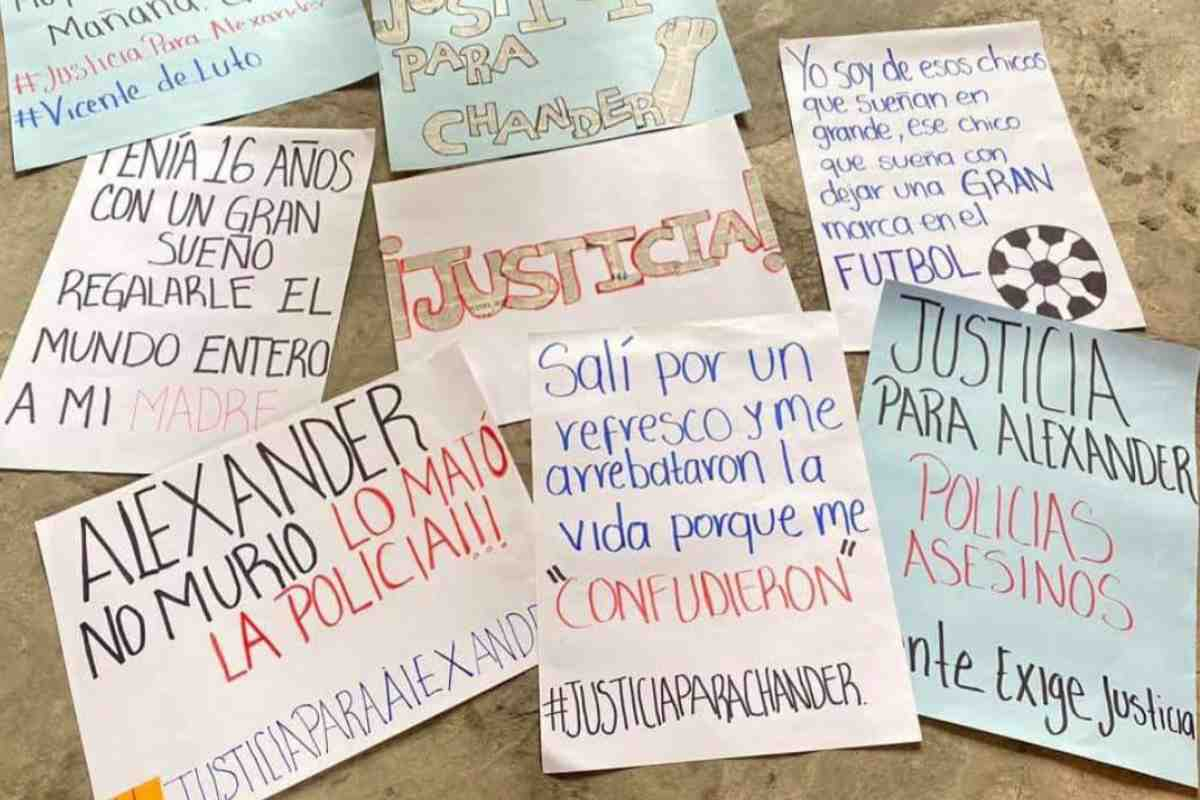 Mañana.
#Justicia Para Alexander
#Vicente de Luto
JUSTI
PARA
CHANDER
Yo soy de esos chicos
que sueñan en
grande, ese chico
que sueña con
dejar una GRAN
marca en el
FUTBOL
TENÍA 16 AÑOS
CON UN GRAN
SUEÑO
REGALARLE EL
MUNDO ENTERO
A MI MADRE
¡JUSTICIA!
ALEXANDER
NO MURIO LO MATÓ
LA POLICIA!!!
JUSTICIAPARAALEXANDE
Salí por un
refresco y me
arrebataron la
vida porque me
"CONFUDIERON"
#JUSTICIAPARACHANDER.
JUSTICIA
PARA ALEXANDER
POLICIAS
ASESINOS
nte Exige Justicia